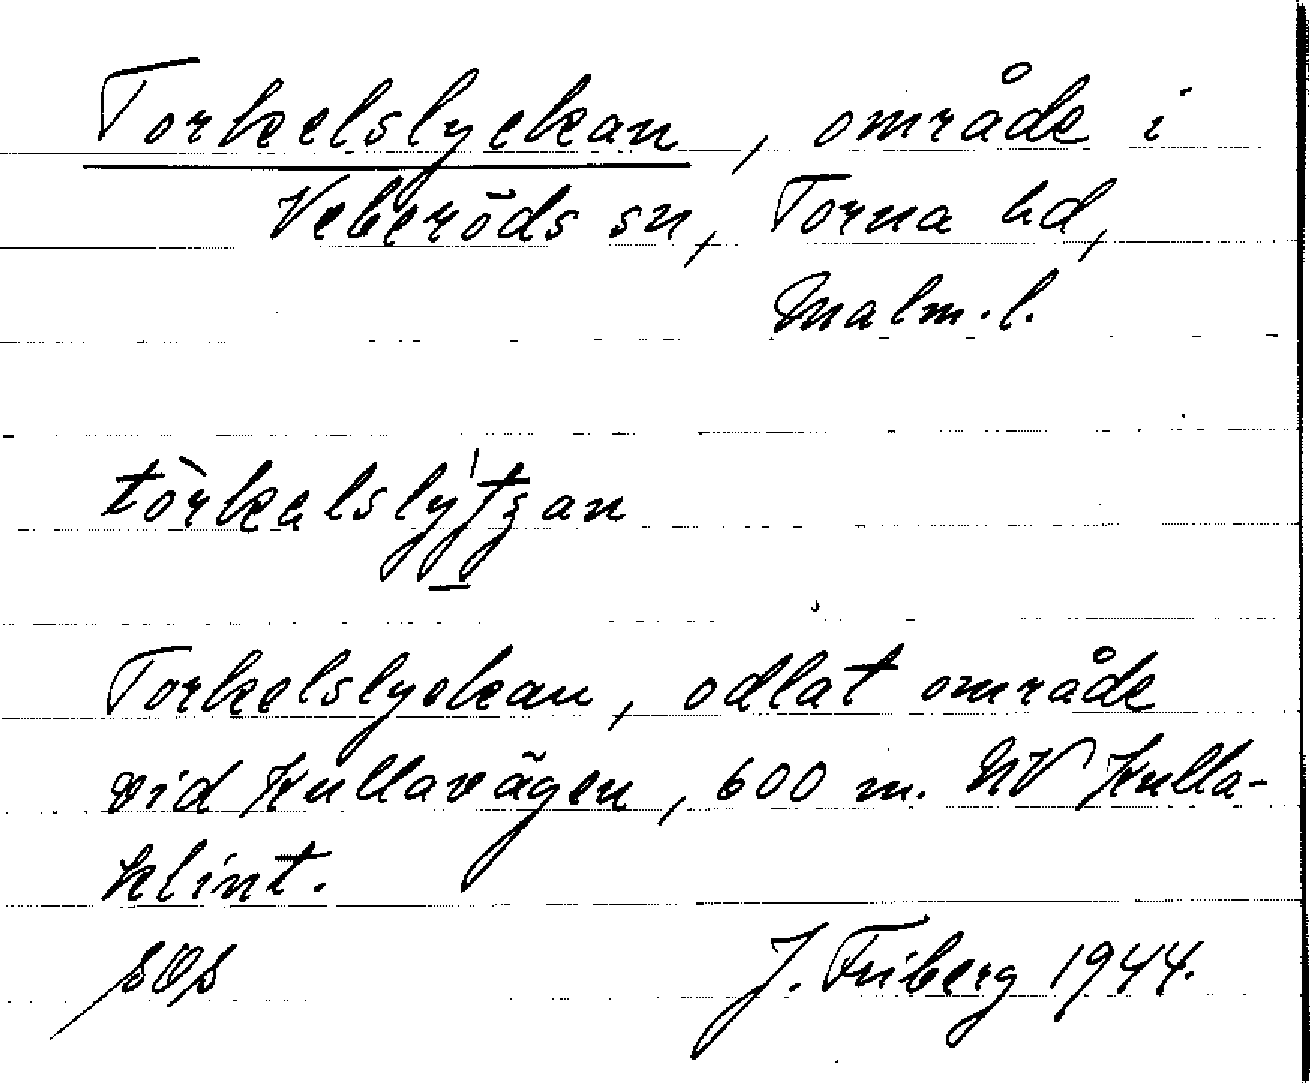 Torkelslyckan, område i
Veberöds sn, Torna hd,
Malm. l.
Torkelslyckan, odlat område
vid Kullavägen, 600 m. NV Kulla-
klint.
J. Friberg 1944.